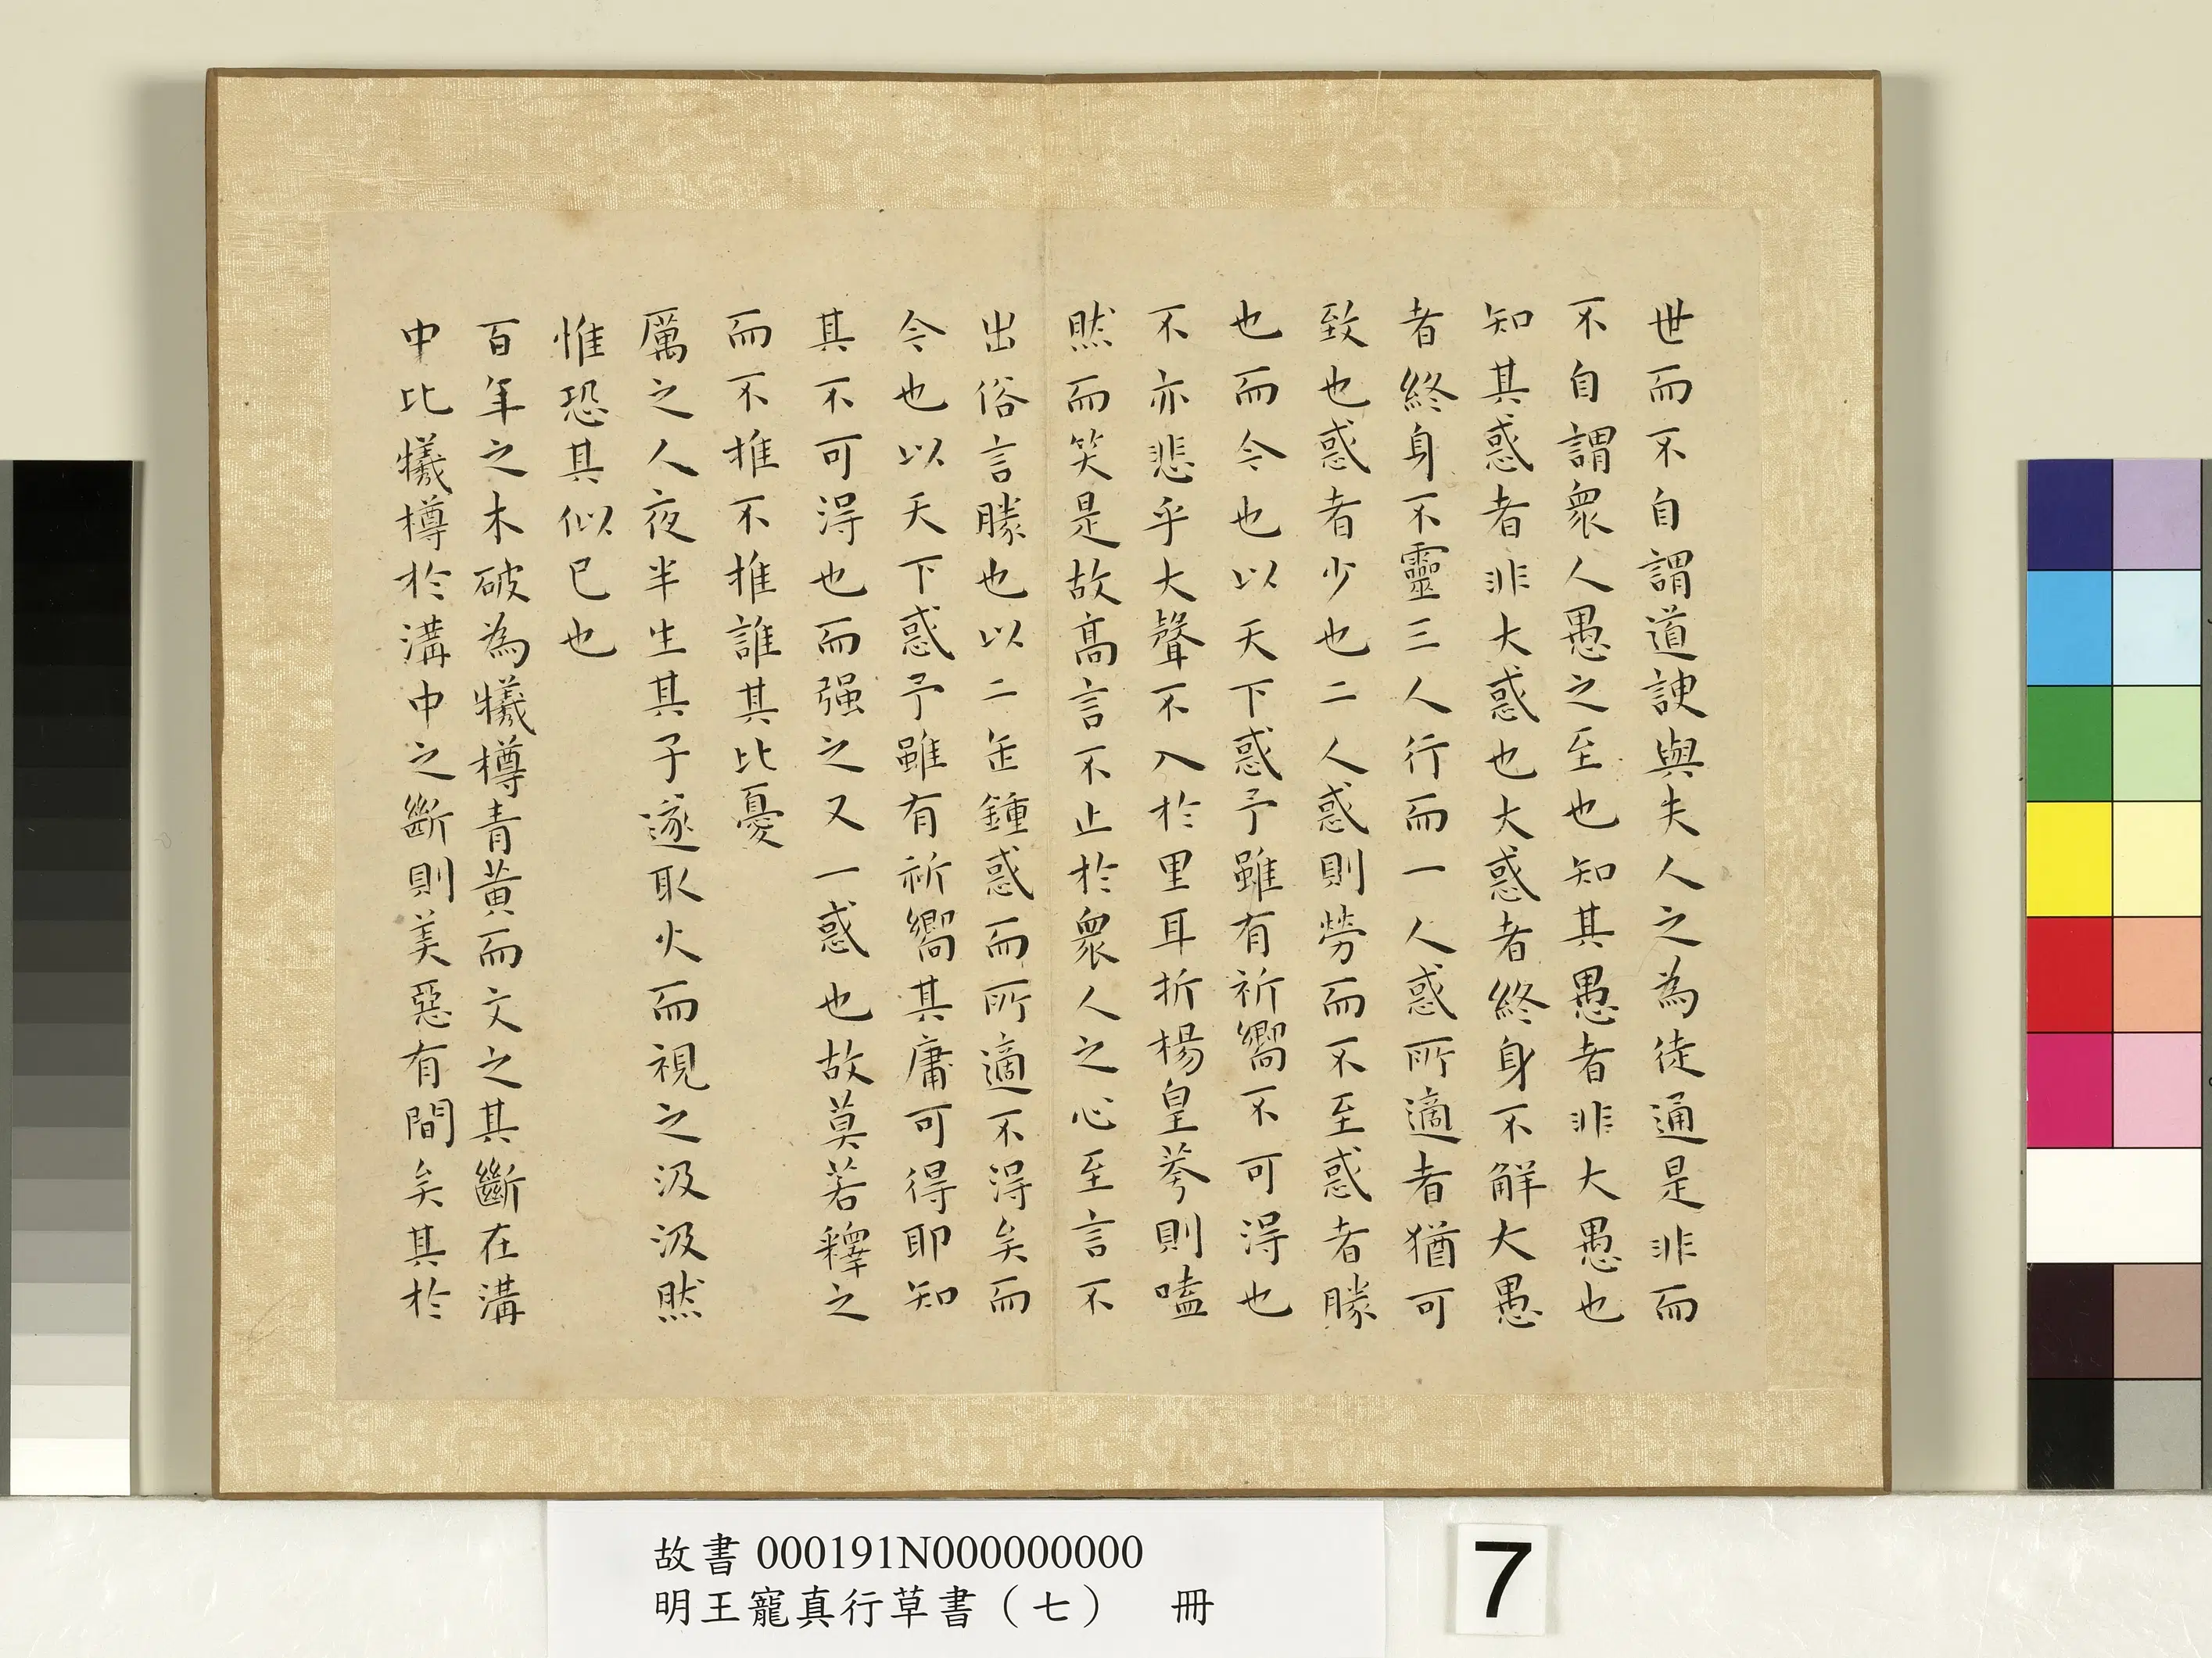 世而不自謂道諛與夫人之為徒通是非而
不自謂衆人愚之至也知其愚者非大愚也
知其惑者非大惑也大惑者終身不解大愚
者終身不靈三人行而一人惑所適者猶可
致也惑者少也二人惑則勞而不至惑者勝
也而今也以天下惑予雖有祈嚮不可得也
不亦悲乎大聲不入於里耳折楊皇荂則嗑
然而笑是故高言不止於衆人之心至言不
出俗言勝也以二缶鍾惑而所適不得矣而
今也以天下惑予雖有祈嚮其庸可得耶知
其不可得也而强之又一惑也故莫若釋之
而不推不推誰其比憂
厲之人夜半生其子遂取火而視之汲汲然
惟恐其似已也
百年之木破為犧樽青黃而文之其斷在溝
中比犧樽於溝中之斷則美惡有間矣其於
故書 000191N000000000
明王寵真行草書（七） 冊
7